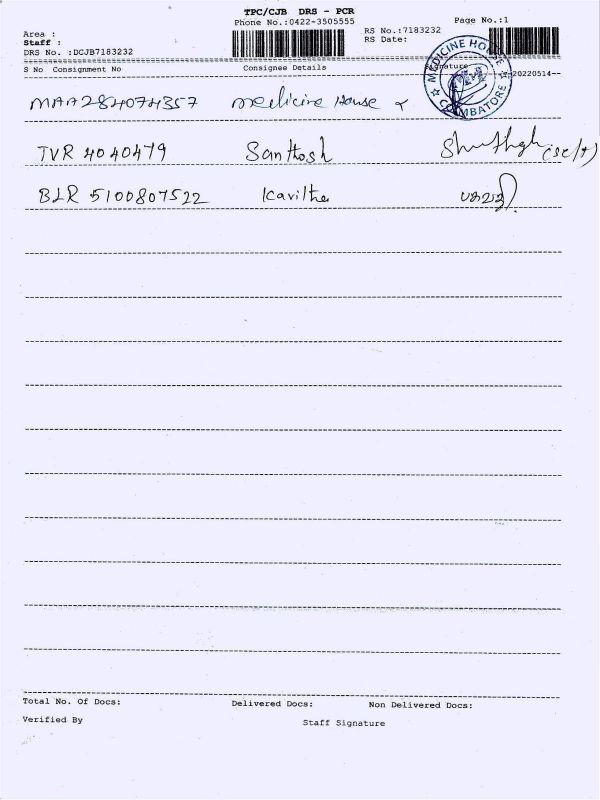 TPC/CJB DRS - PCR
Phone No.:0422-3505555
Page No.:1
Area :
Staff :
DRS No. :DCJB7183232
RS No.:7183232
RS Date:
20220514--
S No Consignment No Consignee Details Signature
MEDICINE HOUSE
COIMBATORE
MAA284074357 medicine House
TVR 4040479 Santhosh
BLR 5100807522 Kavitha
Total No. Of Docs: Delivered Docs: Non Delivered Docs:
Verified By Staff Signature